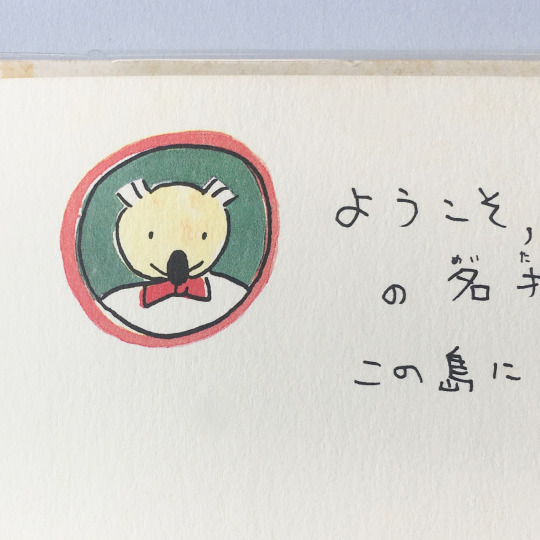 ようこそ,
の名
この島に